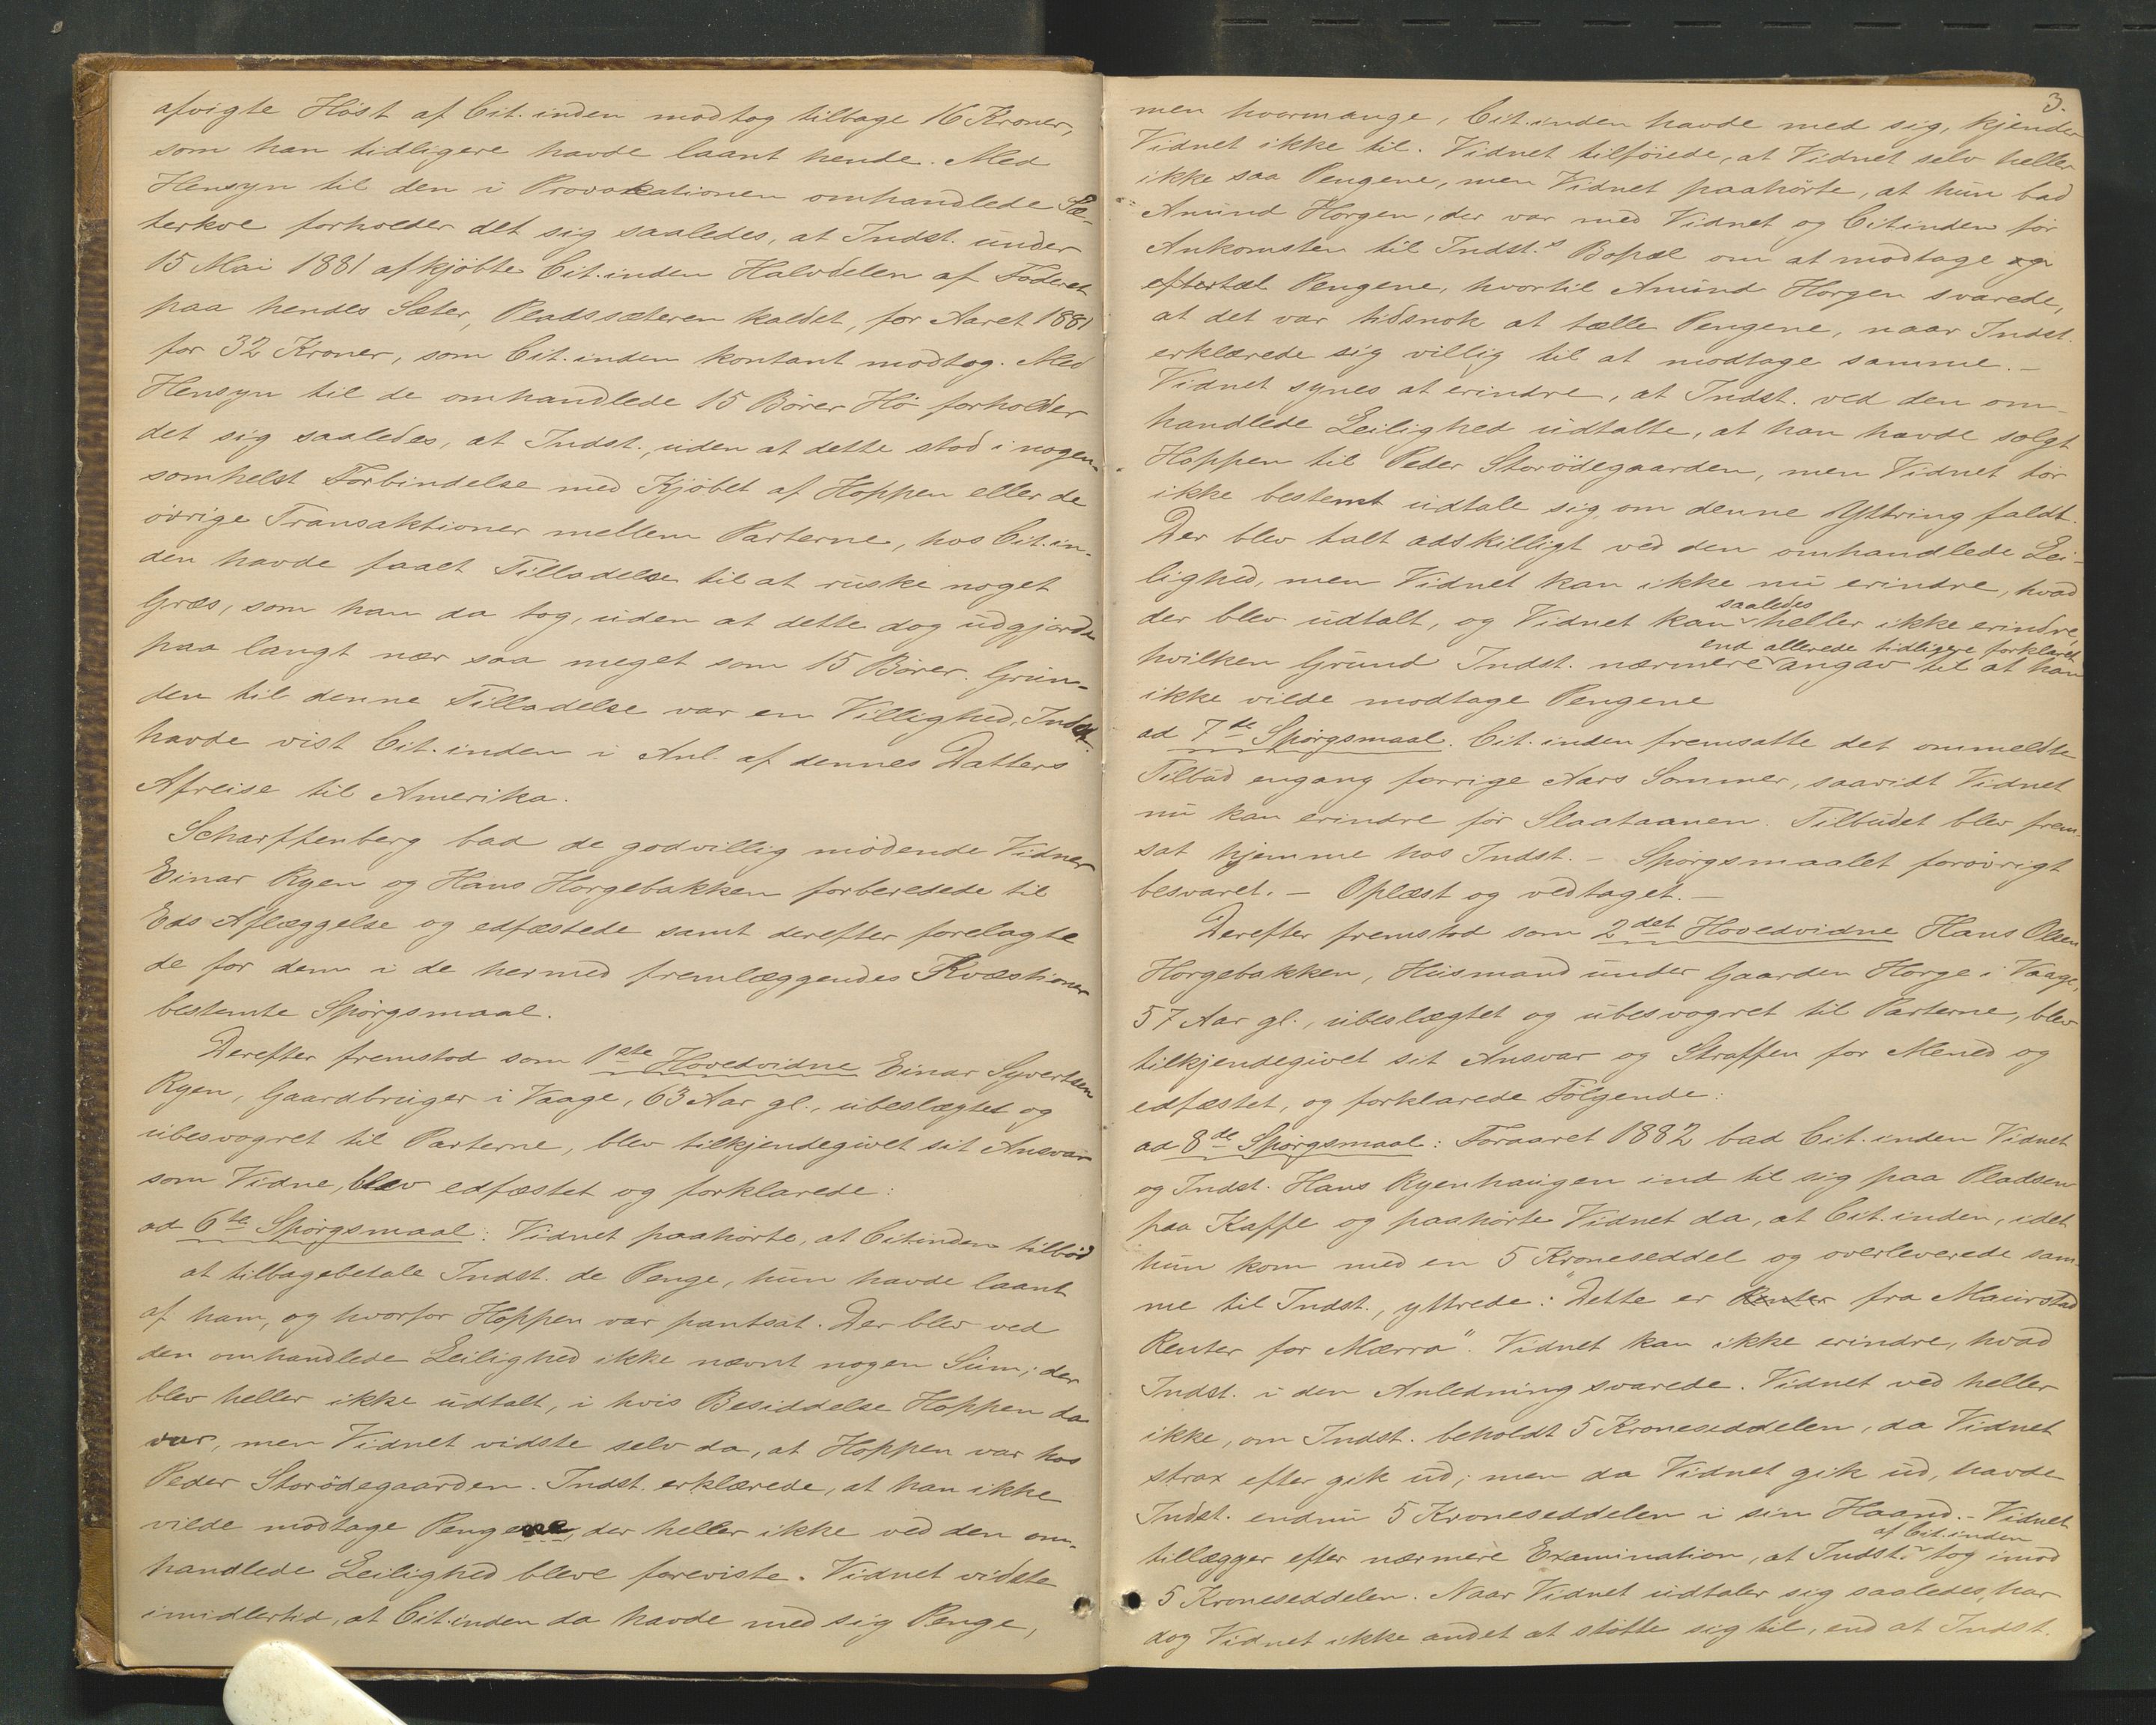 afvigte Høst af Cit.inden modtog tilbage 16 Kroner,
som han tidligere havde laant hende. Med
Hensyn til den i Provokationen omhandlede Sæ-
terkve forholder det sig saaledes, at Indst. under
15 Mai 1881 afkjøbte Cit.inden Halvdelen af Foderet
paa hendes Sæter, Pladssæteren kaldet, for Aaret 1881
for 32 Kroner, som Cit.inden kontant modtog. Med
Hensyn til de omhandlede 15 Bører Hø forholder
det sig saaledes, at Indst., uden at dette stod i nogen-
somhelst Forbindelse med Kjøbet af Hoppen eller de
øvrige Transaktioner mellem Parterne, hos Cit.in-
den havde faaet Tilladelse til at ruske noget
Græs, som han da tog, uden at dette dog udgjorde
paa langt nær saa meget som 15 Bører. Grun-
den til denne Tilladelse var en Villighed, Indst.
havde vist Cit.inden i Anl. af dennes Datters
Afreise til Amerika.
Scharffenberg bad de godvillig mødende Vidner
Einar Ryen og Hans Horgebakken forberedede til
Eds Aflæggelse og edfæstede samt derefter forelagte
de for dem i de hermed fremlæggendes Kvæstioner
bestemte Spørgsmaal.
Derefter fremstod som 1ste Hovedvidne Einar Syvertsen
Ryen, Gaardbruger i Vaage, 63 Aar gl., ubeslægtet og
ubesvogret til Parterne, blev tilkjendegivet sit Ansvar
som Vidne, blev edfæstet og forklarede:
ad 6te Spørgsmaal: Vidnet paahørte, at Citinden tilbød
at tilbagebetale Indst. de Penge, hun havde laant
af ham, og hvorfor Hoppen var pantsat. Der blev ved
den omhandlede Leilighed ikke nævnt nogen Sum; der
blev heller ikke udtalt, i hvis Besiddelse Hoppen da
var, men Vidnet vidste selv da, at Hoppen var hos
Peder Storødegaarden. Indst. erklærede, at han ikke
vilde modtage Pengene, der heller ikke ved den om-
handlede Leilighed bleve foreviste. Vidnet vidste
imidlertid, at Cit.inden da havde med sig Penge,
3.
men hvormange, Cit.inden havde med sig, kjender
Vidnet ikke til. Vidnet tilføiede, at Vidnet selv heller
ikke saa Pengene, men Vidnet paahørte, at hun bad
Amund Horgen, der var med Vidnet og Citinden før
Ankomsten til Indst.s Bopæl om at modtage og
eftertæl Pengene, hvortil Amund Horgen svarede,
at det var tidsnok at tælle Pengene, naar Indst.
erklærede sig villig til at modtage samme. –
Vidnet synes at erindre, at Indst. ved den om-
handlede Leilighed udtalte, at han havde solgt
Hoppen til Peder Storødegaarden, men Vidnet tør
ikke bestemt udtale sig, om denne Yttring faldt.
Der blev talt adskilligt ved den omhandlede Lei-
lighed, men Vidnet kan ikke nu erindre, hvad
saaledes
der blev udtalt, og Vidnet kan heller ikke erindre,
end allerede tidligere forklaret
hvilken Grund Indst. nærmere angav til at han
ikke vilde modtage Pengene
ad 7de Spørgsmaal. Cit.inden fremsatte det ommeldte
Tilbud engang forrige Aars Sommer, saavidt Vidnet
nu kan erindre før Slaataanen. Tilbudet blev frem-
sat hjemme hos Indst. – Spørgsmaalet forøvrigt
besvaret. – Oplæst og vedtaget. –
Derefter fremstod som 2det Hovedvidne Hans Olsen
Horgebakken, Husmand under Gaarden Horge i Vaage,
57 Aar gl., ubeslægtet og ubesvogret til Parterne, blev
tilkjendegivet sit Ansvar og Straffen for Mened og
edfæstet, og forklarede Følgende:
ad 8de Spørgsmaal: Foraaret 1882 bad Cit.inden Vidnet
og Indst. Hans Ryenhaugen ind til sig paa Pladsen
paa Kaffe og paahørte Vidnet da, at Cit.inden, idet
hun kom med en 5 Kroneseddel og overleverede sam-
me til Indst., yttrede: "Dette er Renter fra Maurstad
Renter for Mærra". Vidnet kan ikke erindre, hvad
Indst. i den Anledning svarede. Vidnet ved heller
ikke, om Indst. beholdt 5 Kroneseddelen, da Vidnet
strax efter gik ud; men da Vidnet gik ud, havde
Indst. endnu 5 Kroneseddelen i sin Haand. – Vidnet
af Cit.inden
tillægger efter nærmere Examination, at Indst. tog imod
5 Kroneseddelen. Naar Vidnet udtaler sig saaledes, har
dog Vidnet ikke andet at støtte sig til, end at Indst.